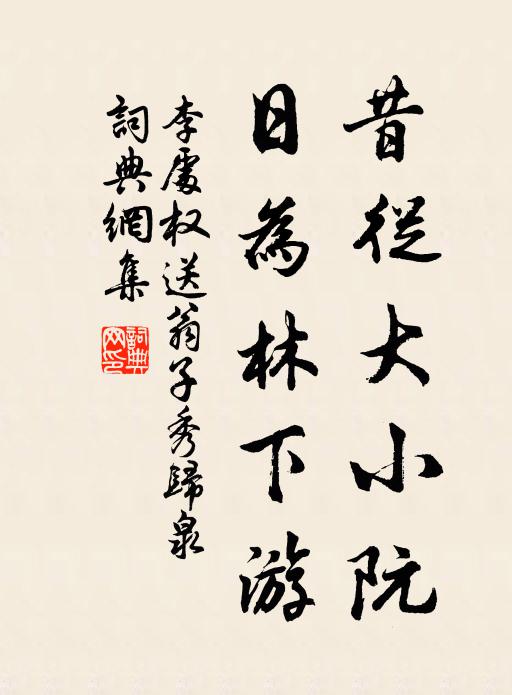 昔從大小阮
日為林下游
李處权送翁子秀歸泉
詞典網集
詞典网印